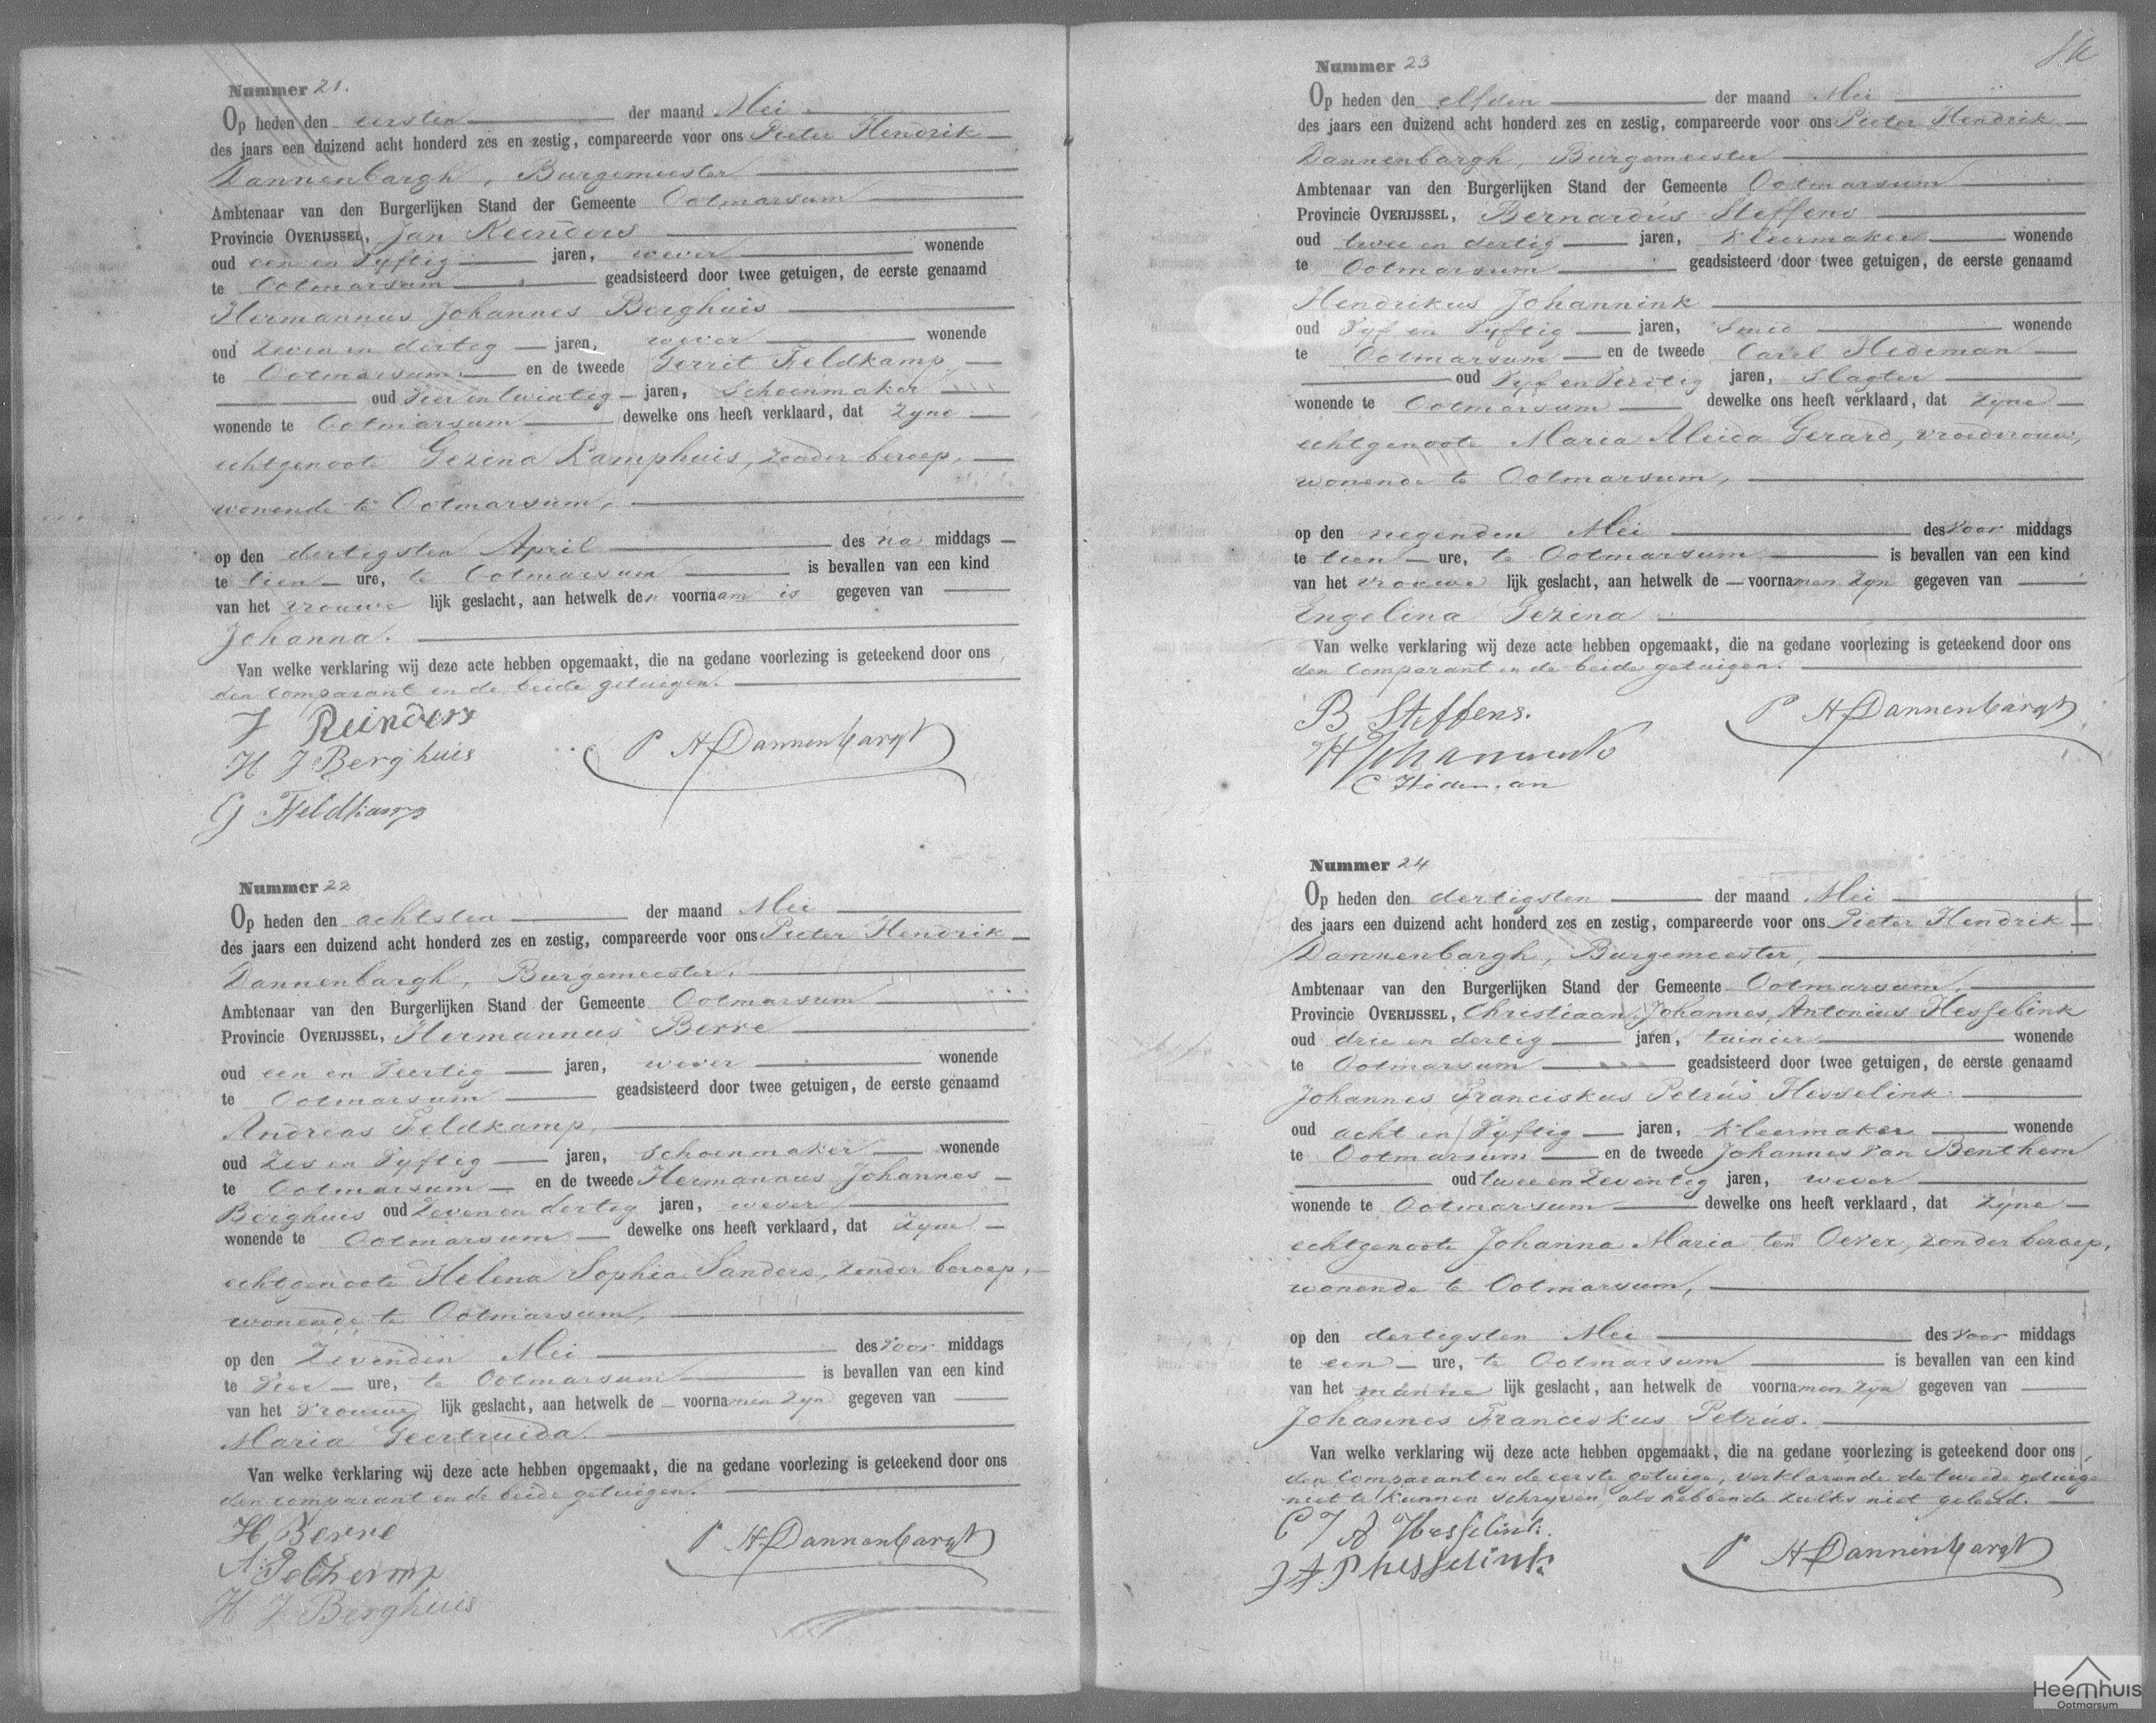 Nummer 21.
Op heden den eersten der maand Mei
des jaars een duizend acht honderd zes en zestig, compareerde voor ons Pieter Hendrik
Dannenbargh, Burgemeester
Ambtenaar van den Burgerlijken Stand der Gemeente Ootmarsum
Provincie OVERIJSSEL, Jan Reinders
oud een en vyftig jaren, wever wonende
te Ootmarsum geadsisteerd door twee getuigen, de eerste genaamd
Hermannus Johannes Berghuis
oud zeven en dertig jaren, wever wonende
te Ootmarsum en de tweede Gerrit Feldkamp
oud vier en twintig jaren, schoenmaker
wonende te Ootmarsum dewelke ons heeft verklaard, dat zyne
echtgenoote Gezina Kamphuis, zonder beroep,
wonende te Ootmarsum,
op den dertigsten April des na middags
te tien ure, te Ootmarsum is bevallen van een kind
van het vrouwe lijk geslacht, aan hetwelk den voornaam is gegeven van
Johanna.
Van welke verklaring wij deze acte hebben opgemaakt, die na gedane voorlezing is geteekend door ons,
den comparant en de beide getuigen.
J Reinders
H J Berghuis
P H Dannenbargh
G Feldkamp
Nummer 22
Op heden den achtsten der maand Mei
des jaars een duizend acht honderd zes en zestig, compareerde voor ons Pieter Hendrik
Dannenbargh, Burgemeester,
Ambtenaar van den Burgerlijken Stand der Gemeente Ootmarsum
Provincie OVERIJSSEL, Hermannus Berre
oud een en veertig jaren, wever wonende
te Ootmarsum geadsisteerd door twee getuigen, de eerste genaamd
Andreas Feldkamp,
oud zes en vyftig jaren, schoenmaker wonende
te Ootmarsum en de tweede Hermannus Johannes
Berghuis oud zeven en dertig jaren, wever
wonende te Ootmarsum dewelke ons heeft verklaard, dat zyne
echtgenoote Helena Sophia Sanders, zonder beroep,
wonende te Ootmarsum,
op den zevenden Mei des voor middags
te vier ure, te Ootmarsum is bevallen van een kind
van het vrouwe lijk geslacht, aan hetwelk de voornamen zyn gegeven van
Maria Geertruida.
Van welke verklaring wij deze acte hebben opgemaakt, die na gedane voorlezing is geteekend door ons
den comparant en de beide getuigen.
H Berre
P H Dannenbargh
H J Berghuis
Nummer 23
Op heden den elfden der maand Mei
des jaars een duizend acht honderd zes en zestig, compareerde voor ons Pieter Hendrik
Dannenbargh, Burgemeester
Ambtenaar van den Burgerlijken Stand der Gemeente Ootmarsum
Provincie OVERIJSSEL, Bernardus Steffens
oud twee en dertig jaren, kleermaker wonende
te Ootmarsum geadsisteerd door twee getuigen, de eerste genaamd
Hendrikus Johannink
oud vyf en vyftig jaren, smid wonende
te Ootmarsum en de tweede Carel Hedeman
oud vyf en veertig jaren, slagter
wonende te Ootmarsum dewelke ons heeft verklaard, dat zyne
echtgenoote Maria Aleida Gerard, vroedvrouw,
wonende te Ootmarsum,
op den negenden Mei des voor middags
te tien ure, te Ootmarsum is bevallen van een kind
van het vrouwe lijk geslacht, aan hetwelk de voornamen zyn gegeven van
Engelina Gezina
Van welke verklaring wij deze acte hebben opgemaakt, die na gedane voorlezing is geteekend door ons
den comparant en de beide getuigen.
B Steffens.
P H Dannenbargh
H Johannink
C Hedeman
Nummer 24
Op heden den dertigsten der maand Mei
des jaars een duizend acht honderd zes en zestig, compareerde voor ons Pieter Hendrik
Dannenbargh, Burgemeester,
Ambtenaar van den Burgerlijken Stand der Gemeente Ootmarsum,
Provincie OVERIJSSEL, Christiaan Johannes Antonius Hesselink
oud drie en dertig jaren, tuinier wonende
te Ootmarsum geadsisteerd door twee getuigen, de eerste genaamd
Johannes Franciskus Petrus Hesselink
oud acht en vyftig jaren, kleermaker wonende
te Ootmarsum en de tweede Johannes van Benthem
oud twee en zeventig jaren, wever
wonende te Ootmarsum dewelke ons heeft verklaard, dat zyne
echtgenoote Johanna Maria ten Oever, zonder beroep,
wonende te Ootmarsum,
op den dertigsten Mei des voor middags
te een ure, te Ootmarsum is bevallen van een kind
van het manne lijk geslacht, aan hetwelk de voornamen zyn gegeven van
Johannes Franciskus Petrus.
Van welke verklaring wij deze acte hebben opgemaakt, die na gedane voorlezing is geteekend door ons,
den comparant en de eerste getuige, verklarende de tweede getuige
niet te kunnen schryven, als hebbende zulks niet geleerd.
C J A Hesselink.
P H Dannenbargh
J F P hesselink
Heemhuis
Ootmarsum